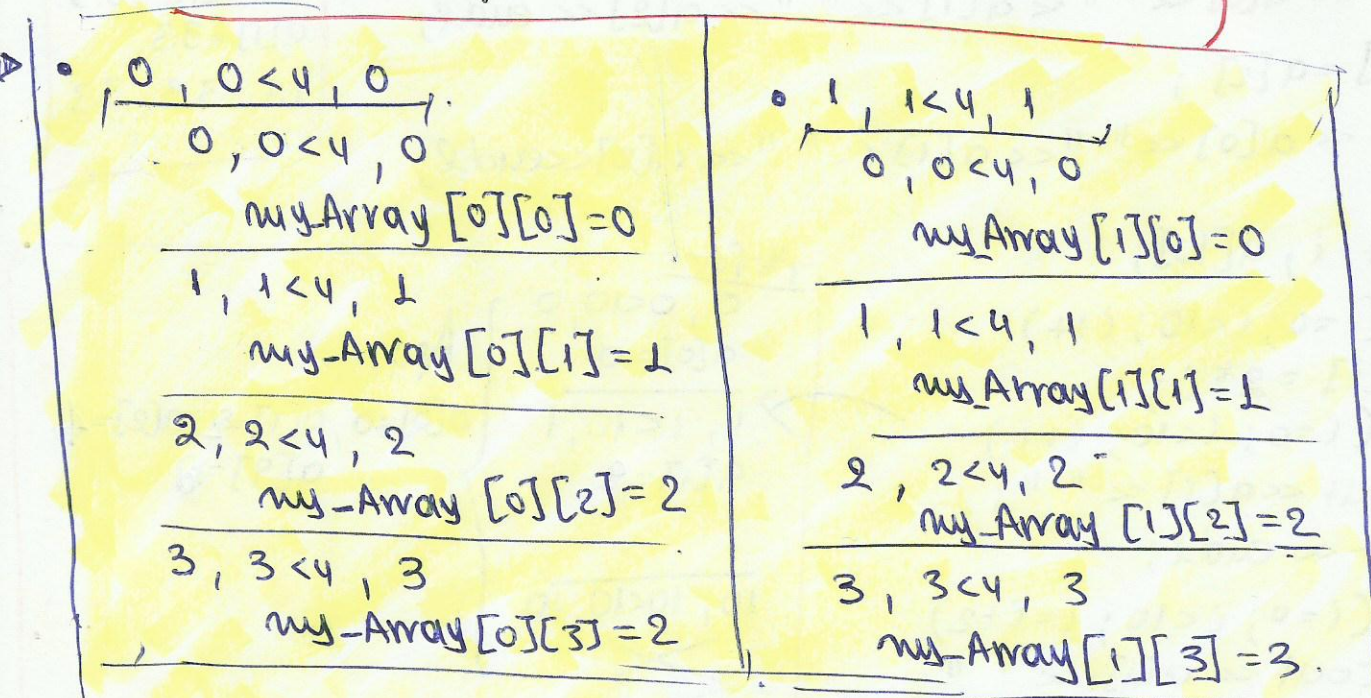 • 0, 0<4, 0
0, 0<4, 0
my_Array [0][0]=0
1, 1<4, 1
my_Array [0][1]=1
2, 2<4, 2
my_Array [0][2]=2
3, 3<4, 3
my_Array[0][3]=2
• 1, 1<4, 1
0, 0<4, 0
my_Array[1][0]=0
1, 1<4, 1
my_Array[1][1]=1
2, 2<4, 2
my_Array [1][2]=2
3, 3<4, 3
my_Array[1][3]=3.